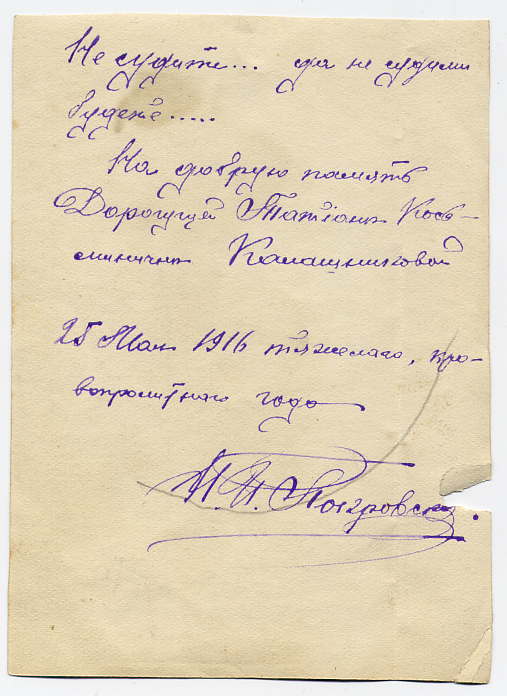 Не судите... да не судими
будете.....
На добрую память
Дорогущей Татіанѣ Козь-
миничнѣ Калашниковой
25 Мая 1916 тяжелаго, кро-
вопролитнаго года